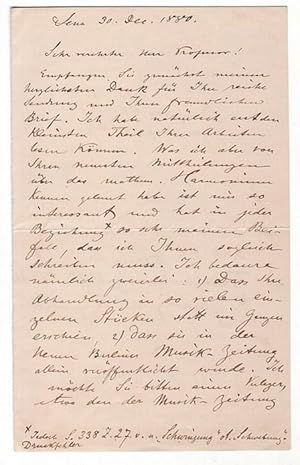 Jena 30. Dec. 1880.
Sehr verehrter Herr Professor!
Empfangen Sie zunächst meinen
herzlichsten Dank für Ihre reiche
Sendung und Ihren freundlichen
Brief. Ich habe natürlich erst den
kleinsten Theil Ihrer Arbeiten
lesen können. Was ich aber von
Ihren neuesten Mittheilungen
über das mathem. Harmonium
kennen gelernt habe ist mir so
interessant und hat in jeder
Beziehung* so sehr meinen Bei-
fall, dass ich Ihnen sogleich
schreiben muss. Ich bedaure
nämlich zweierlei: 1) Dass Ihre
Abhandlung in so vielen ein-
zelnen Stücken statt im Ganzen
erschien, 2) dass sie in der
Neuen Berliner Musik-Zeitung
allein veröffentlicht wurde. Ich
möchte Sie bitten einen Verleger,
etwa den der Musik-Zeitung
* S. 338 Z. 27 v. u. "Schwingung" st. "Schwebung"
Druckfehler